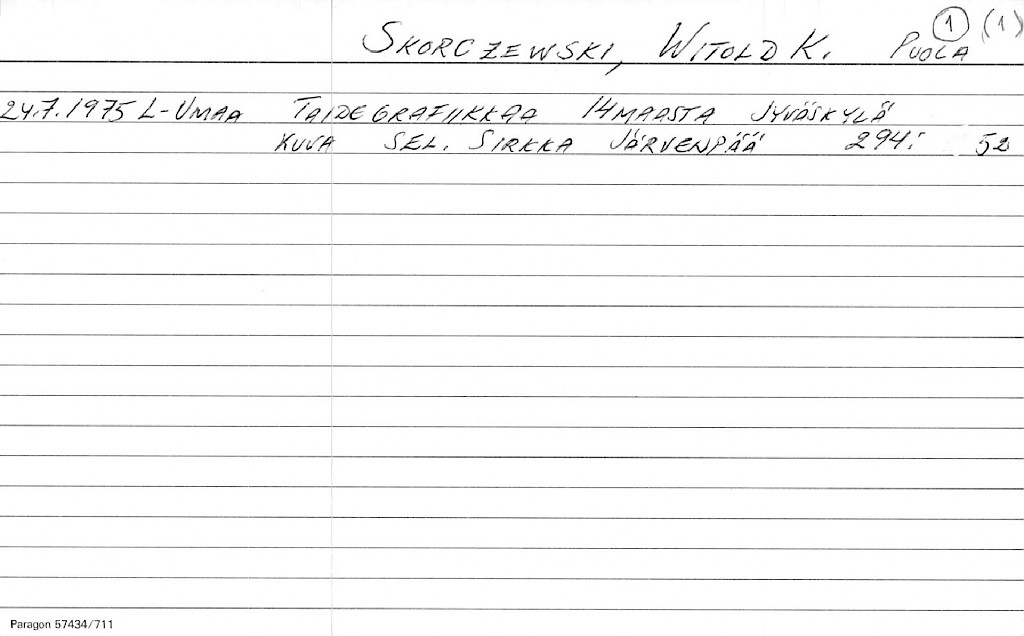 SKORCZEWSKI, WITOLD K. PUOLA 1 (1)
24.7.1975 L-UMAA TAIDEGRAFIIKKAA 14MAASTA JYVÄSKYLÄ
KUVA SEL. SIRKKA JÄRVENPÄÄ 294: 52
Paragon 57434/711